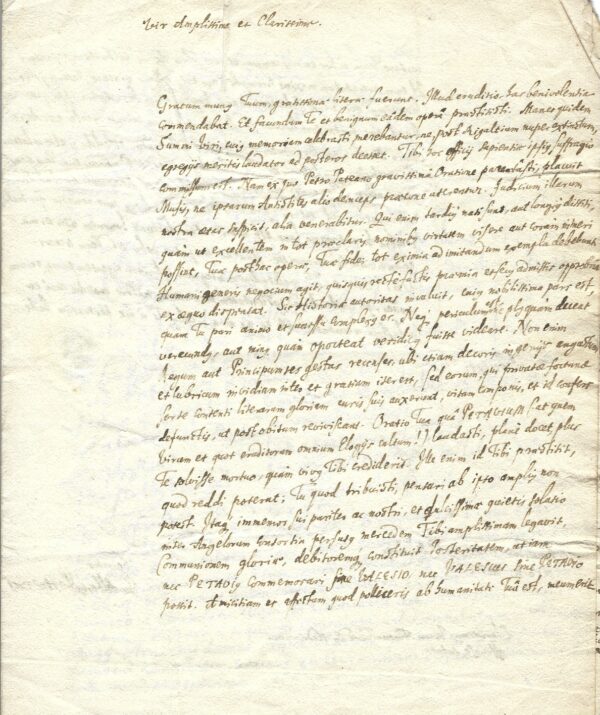 Vir Amplissime et Clarissime.
Gratum munus Tuum, gratissimæ literæ fuerunt. Illud eruditio has benivolentia
commendabat. Et facundum Te et benignum eâdem operâ præstitisti. Manes quidem
Summi Viri, cuius memoriam celebrasti merebantur, ne post Rigaltium nuper extinctum,
egregiis meritis laudator ad posteros deesset. Tibi hoc officij Sapientiæ ipsius suffragio
commissum est. Nam ex quo Petro Puteano gravissimâ Oratione parentasti, placuit
Musis, ne ipsarum Antistites, alio deinceps præcone uterentur. Judicium illarum
nostra ætas suspiciet, alia venerabitur. Qui enim tardius nati sunt, aut longius dissiti,
quàm ut excellentem in tot præclaris nominibus virtutem visere aut coram mirari
possint, Tuæ posthac operæ, Tuæ fidei tot eximia ad imitandum exempla debebunt.
Humani generis negocium agit, quisquis recte factis præmia et secus admissis opprobria
ex æquo dispensat. Sic Historiæ autoritas invaluit, cuius nobilissima pars est,
quam Tu pari animo et successu complexus es. Neque periculum est plus quàm deceat
verecundus, aut minus quàm oporteat veridicus fuisse videare. Non enim
Regum aut Principum res gestas recenses, ubi etiam decoris ingenijs
et lubricum invidiam inter et gratiam iter est, sed eorum, qui privatæ fortunæ
sorte contenti literarum gloriam curis suis auxerunt, vitam componis, et id confers
defunctis, ut post obitum reviviscant. Oratio Tua quâ PETAVIUM (at quem
Virum et quot eruditorum omnium Elogiis cultum!) laudasti, planè docet plus
Te solvisse mortuo, quàm vivus Tibi crediderit. Ille enim id Tibi præstitit,
quod reddi poterat; Tu quod tribuisti, pensari ab ipso amplius non
potest. Itaque immemor sui pariter ac nostri, et dulcissimæ quietis solatio
inter Angelorum consortia perfusus mercedem Tibi amplissimam legavit,
Communionem gloriæ, debitoremque constituit Posteritatem, ut iam
nec PETAVIUS commemorari sine VALESIO, nec VALESIUS sine PETAVIO
possit. Amicitiam et affectum quod polliceris ab humanitate Tuâ est, meum erit